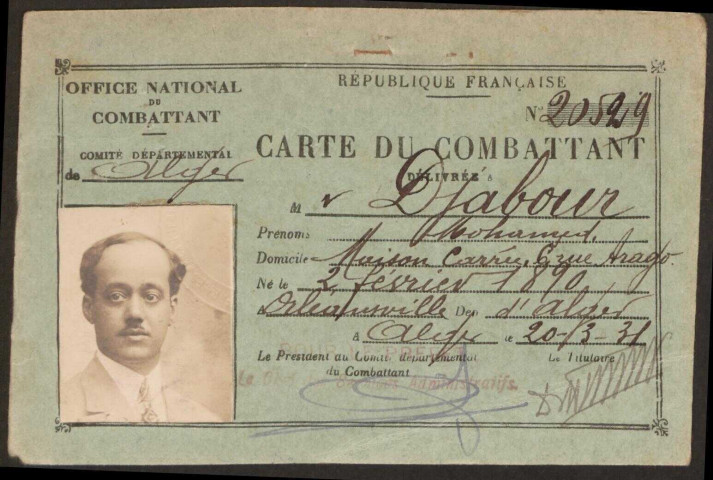 OFFICE NATIONAL
DU
COMBATTANT
COMITÉ DÉPARTEMENTAL
de Alger
RÉPUBLIQUE FRANÇAISE
N° 20529
CARTE DU COMBATTANT
DÉLIVRÉE A
M r Djabour
Prénoms Mohamed,
Domicile Maison Carrée, 6, rue Arago.
Né le 2 février 1890,
à Orléansville Dep d'Alger
A Alger le 20-3-31
Le Président du Comité départemental
du Combattant
Le Titulaire
Administratifs.